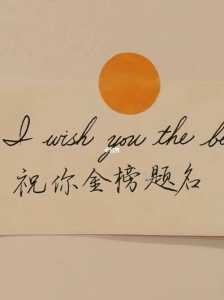 I wish you the be
祝你金榜题名